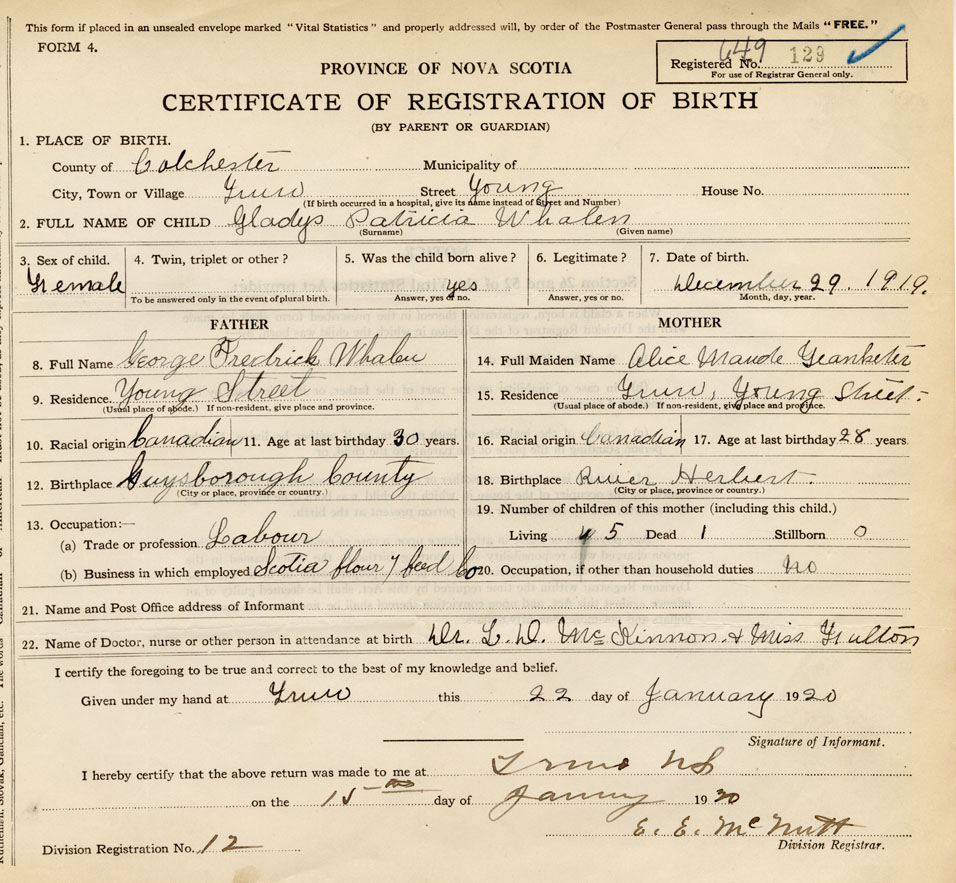 This form if placed in an unsealed envelope marked "Vital Statistics" and properly addressed will, by order of the Postmaster General pass through the Mails "FREE."
FORM 4.
649 129
Registered No.
For use of Registrar General only.
PROVINCE OF NOVA SCOTIA
CERTIFICATE OF REGISTRATION OF BIRTH
(BY PARENT OR GUARDIAN)
1. PLACE OF BIRTH.
County of Colchester Municipality of
City, Town or Village Truro Street Young House No.
(If birth occurred in a hospital, give its name instead of Street and Number)
2. FULL NAME OF CHILD Gladys Patricia Whalen
(Surname) (Given name)
3. Sex of child. 4. Twin, triplet or other? 5. Was the child born alive? 6. Legitimate? 7. Date of birth.
Female yes December 29. 1919.
To be answered only in the event of plural birth. Answer, yes or no. Answer, yes or no. Month, day, year.
FATHER
8. Full Name George Fredrick Whalen
9. Residence. Young Street
(Usual place of abode.) If non-resident, give place and province.
10. Racial origin Canadian 11. Age at last birthday 30 years.
12. Birthplace Guysborough County
(City or place, province or country.)
13. Occupation:—
(a) Trade or profession Labour
(b) Business in which employed Scotia flour & feed Co
MOTHER
14. Full Maiden Name Alice Maude
15. Residence Truro, Young Street.
(Usual place of abode.) If non-resident, give place and province.
16. Racial origin Canadian 17. Age at last birthday 28 years.
18. Birthplace River Herbert.
(City or place, province or country.)
19. Number of children of this mother (including this child.)
Living 4 5 Dead 1 Stillborn 0
20. Occupation, if other than household duties no
21. Name and Post Office address of Informant
22. Name of Doctor, nurse or other person in attendance at birth Dr. L. D. McKinnon. & Miss Fulton
I certify the foregoing to be true and correct to the best of my knowledge and belief.
Given under my hand at Truro this 22 day of January 1920
Signature of Informant.
I hereby certify that the above return was made to me at Truro NS
on the 15 day of January 1920
E. E. McNutt
Division Registrar.
Division Registration No. 12